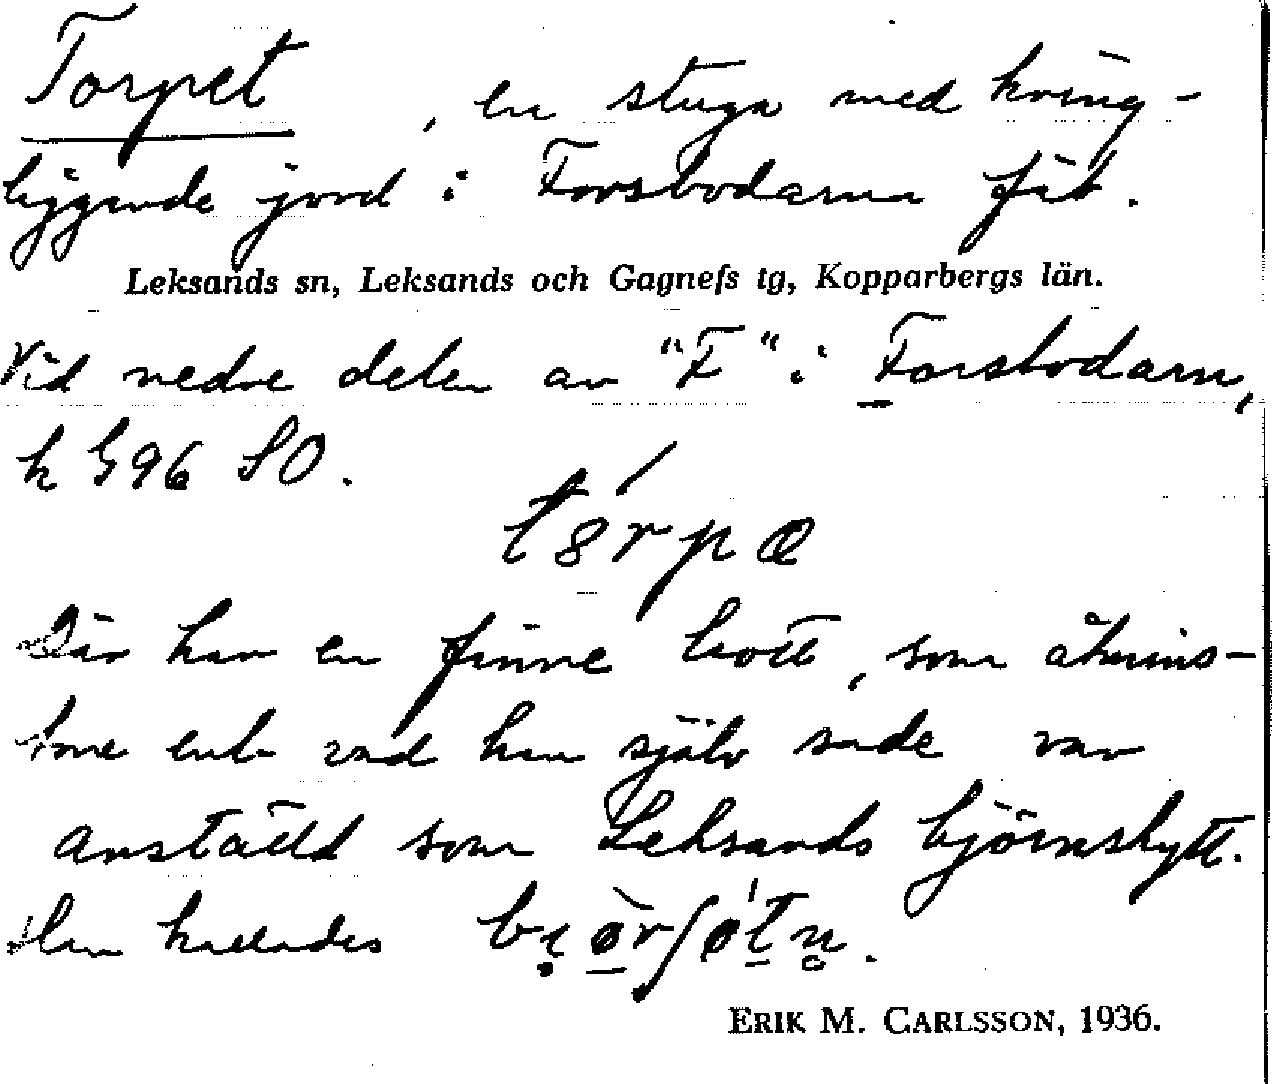 Torpet , en stuga med kring-
liggande jord i Forsbodarna fäb.
Leksands sn, Leksands och Gagnefs tg, Kopparbergs län.
Vid nedre delen av "F" i Forsbodarn,
k G96 SO.
tɵ́rpœ
Där har en finne bott, som åtmins-
tone enl. vad han själv sade var
anställd som Leksands björnskytt.
Han kallades
ERIK M. CARLSSON, 1936.